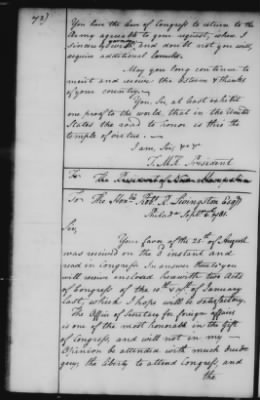 73)
You have the leave of Congress to return to the
Army agreeable to your request, where I
sincerely wish, and doubt not you will,
acquire additional Laurels.
May you long continue to
merit and receive the esteem & thanks
of your country.
You, Sir, at least exhibit
one proof to the world, that in the United
States the road to honor is thro the
temple of virtue.
I am, Sir, &c
T. M.K. President
To The President of New Hampshire
To The Honble Robt R. Livingston Esqr
Philada Septr 6, 1781.
Sir,
Your favor of the 25th of August
was received on the instant and
read in Congress. In answer thereto you
will receive enclosed herewith two Acts
of Congress of the 10th & of January
last, which I hope will be satisfactory.
The Office of Secretary for foreign affairs
is one of the most honorable in the Gift
of Congress, and will not in my
Opinion be attended with much drud-
gery; the liberty to attend Congress, and
the